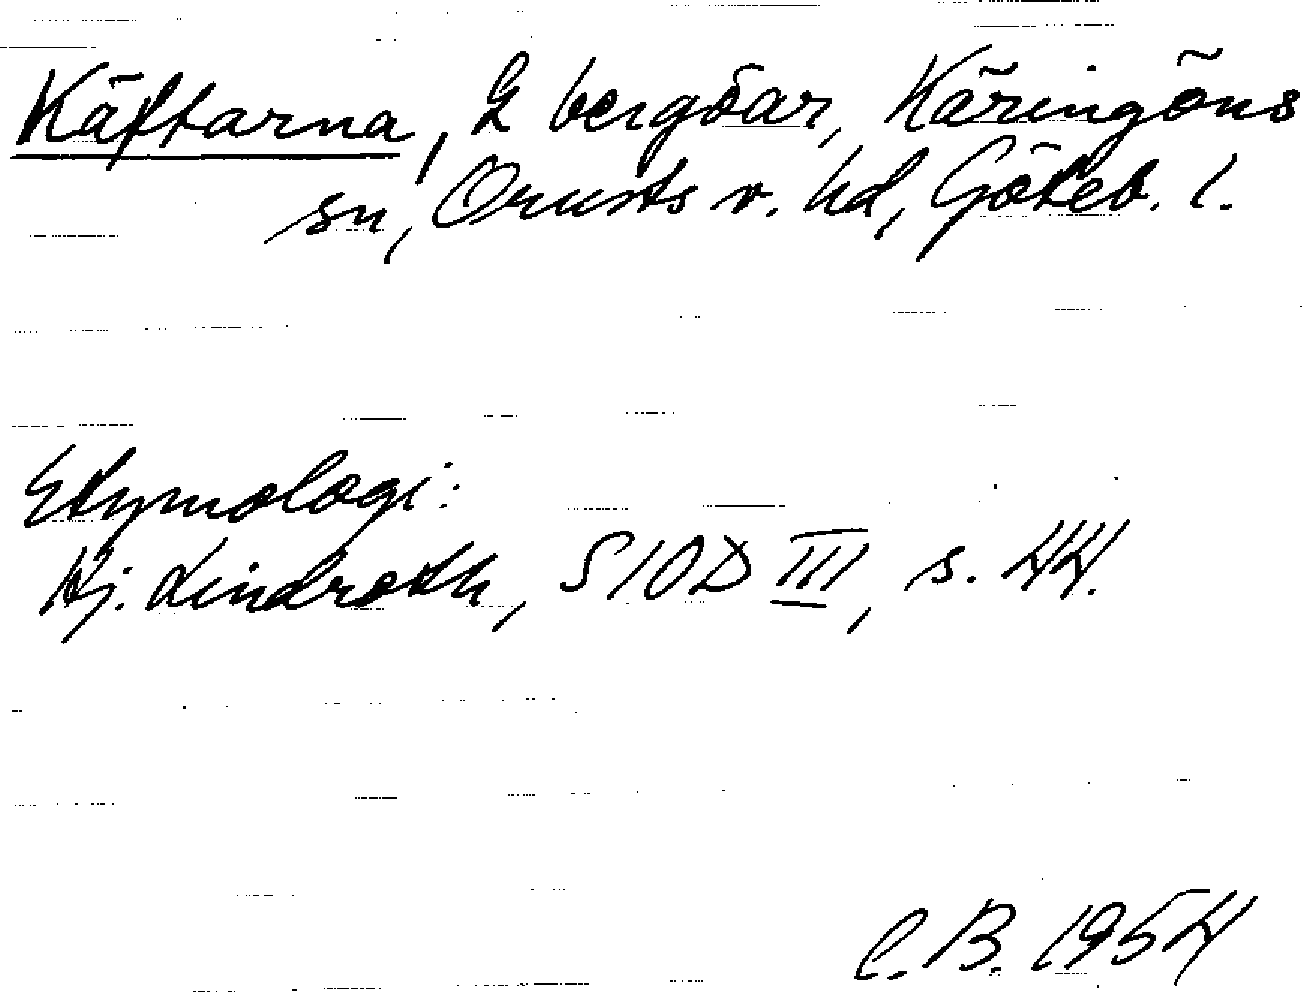 Käftarna, 2 bergöar, Käringöns
sn, Orusts v. hd, Göteb. l.
Etymologi:
Hj. Lindroth, SIOD III, s. 44.
C.B. 1954